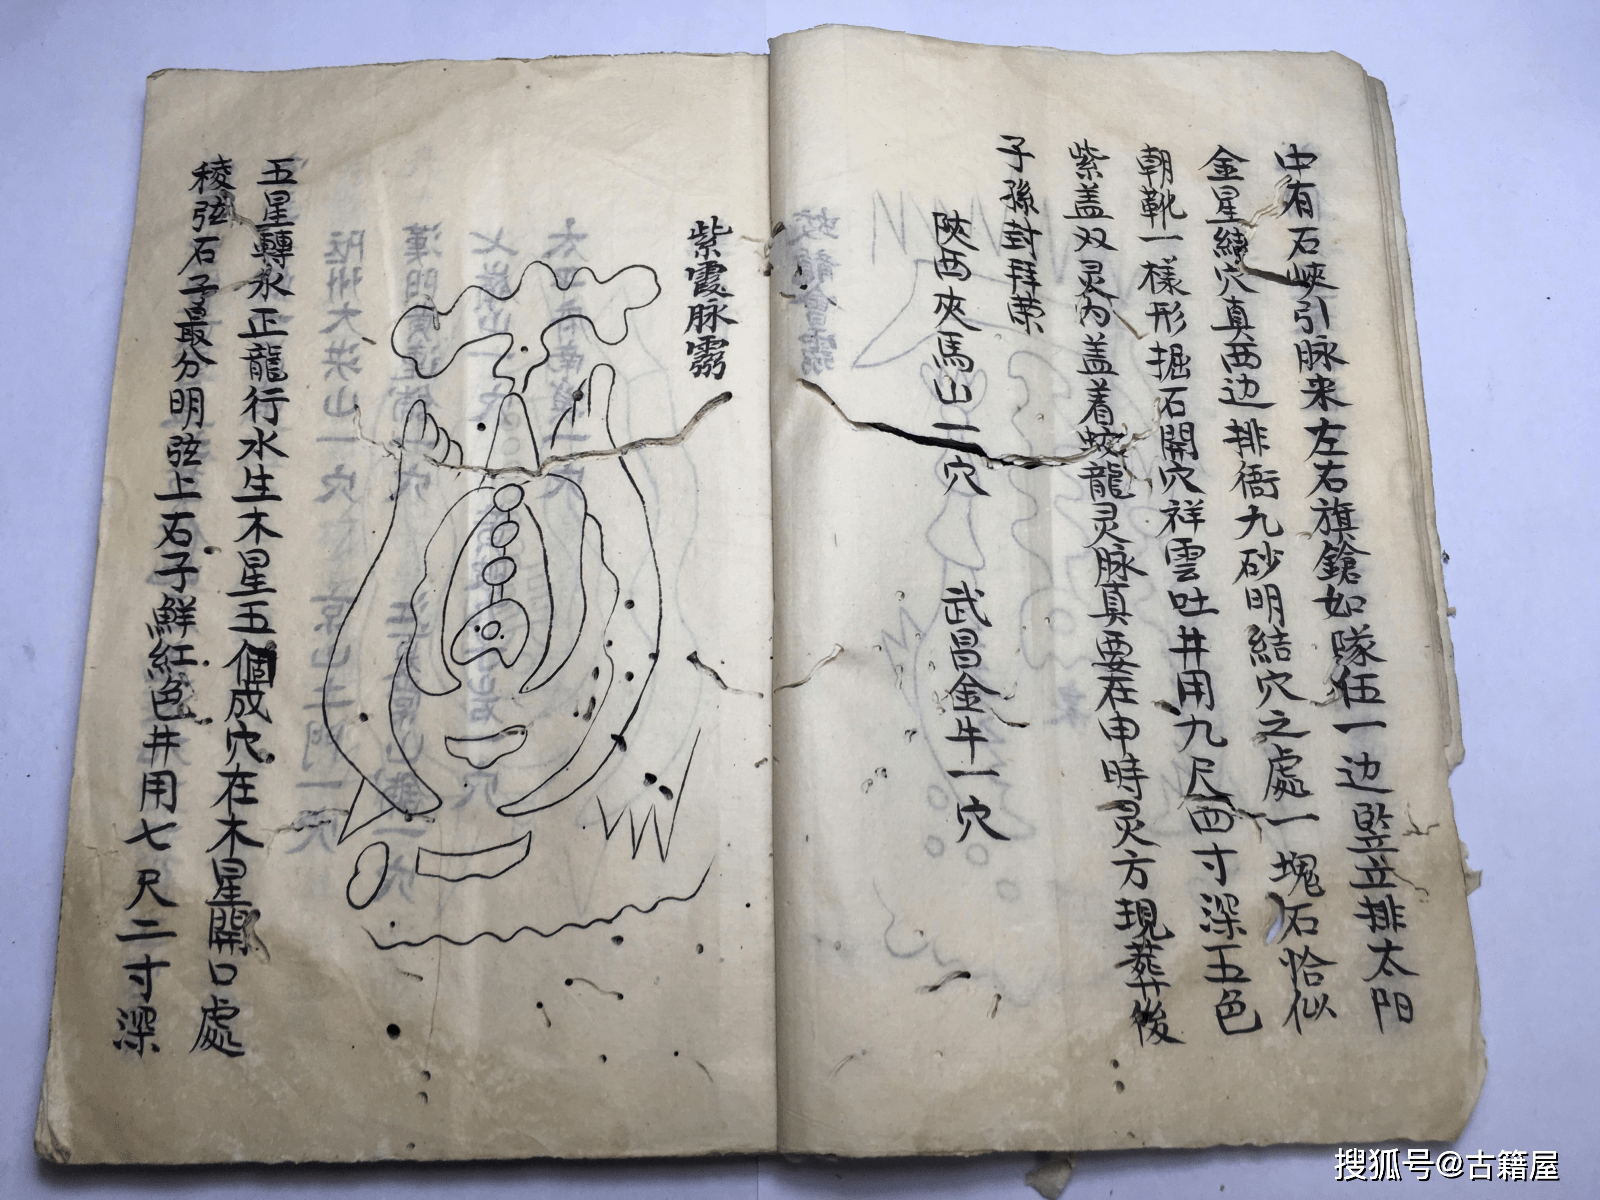 中有石峽引脉来左右旗鎗如隊伍一边竖立排太阳
金星繞穴真两边排衙九砂明結穴之處一塊石恰似
朝靴一樣形掘石開穴祥雲吐井用九尺四寸深五色
紫盖双灵内盖着蛟龍灵脉真要在申時灵方現葬後
子孫封拜荣
陝西夾馬山一穴 武昌金牛一穴
紫霞脉
五星轉永正龍行水生木星五個成穴在木星開口處
稜弦石子最分明弦上石子鮮紅色井用七尺二寸深
搜狐号@古籍屋